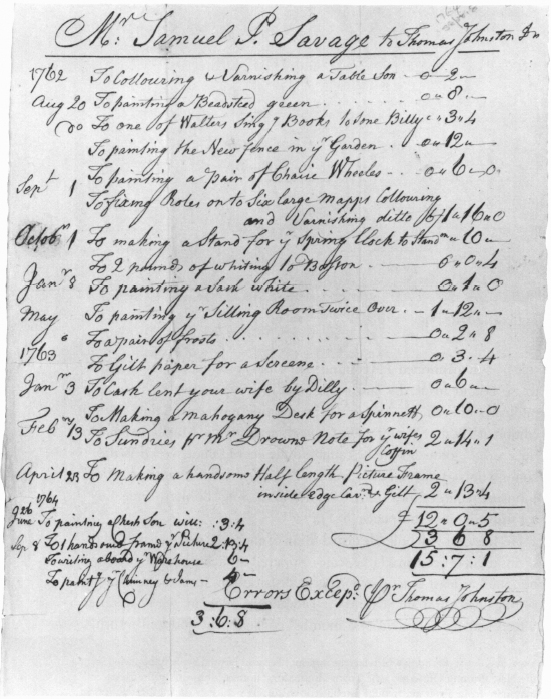 Mr. Samuel P. Savage to Thomas Johnston Dr
1762 To Collouring & Varnishing a Table Son - 0 " 2 "
Aug 20 To painting a Beadsted green . . . . . . 0 " 8 "
Do To one of Walters Sing g Books to Son Billy " " 3 " 4
To painting the New Fence in yr Garden . - 0 " 12 "
Sept 1 To painting a Pair of Chaie Wheeles - . 0 " 6 " 0
To fixing Roles on to Six large mapps Collouring
and Varnishing ditto @ 6/ 1 " 16 " 0
Octobr 1 To making a Stand for yr Spring Clock to Stand on " 10 "
To 2 pounds of whiting to Boston . — 0 " 0 " 4
Janr 8 To painting a Sash white . — 0 " 1 " 0
May To painting yr Sitting Room Twice Over . - 1 " 12 "
To a pair of frosts . . . . . . . 0 " 2 " 8
1763 To Gilt paper for a Screene . . — 0 " 3 " 4
Janr 3 To Cash lent your wife by Dilly . — 0 " 6 "
To Making a mahogany Desk for a Spinnett 0 " 10 " 0
Febry 13 To Sundries pr Mr Drowne Note for yr wifes Coffin 2 " 14 " 1
April 23 To Making a handsome Half length Picture Frame
inside edge Carv'd & Gilt 2 " 13 " 4
£ 12 " 0 " 5
1764
June To painting a fresh Son will: : 3 : 4
3 6 8
Sep 8 To 1 handsome frame yr Picture 2 : 13 : 4
15 : 7 : 1
To writing a board yr Warehouse 6 "
To paintg yr Chimney & Jams - 4 "
3 : 6 : 8
Errors Excepd pr Thomas Johnston